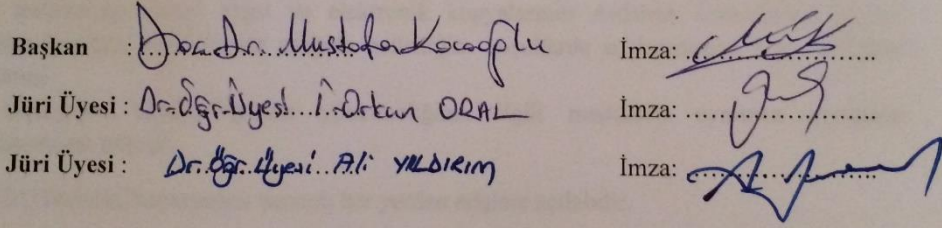 Başkan : Doç. Dr. Mustafa Kocaoğlu İmza:
Jüri Üyesi : Dr. Öğr. Üyesi İ. Orkun ORAL İmza:
Jüri Üyesi : Dr. Öğr. Üyesi Ali YILDIRIM İmza: